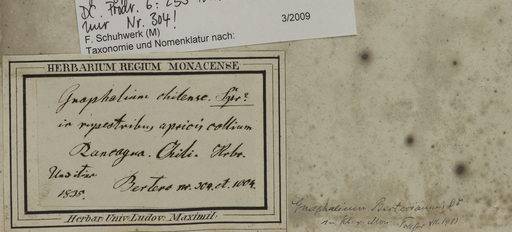 DC. Prodr. 6: 235
nur Nr. 304!
F. Schuhwerk (M) 3/2009
Taxonomie und Nomenklatur nach:
HERBARIUM REGIUM MONACENSE
Gnaphalium chilense. Spr?
in rupestribus apricis collium
Rancagua. Chili. Hrbr.
Unio itin.
1835. Bertero nr. 304. et. 1004.
Herbar. Univ. Ludov. Maximil.
Gnaphalium Berterianum DC